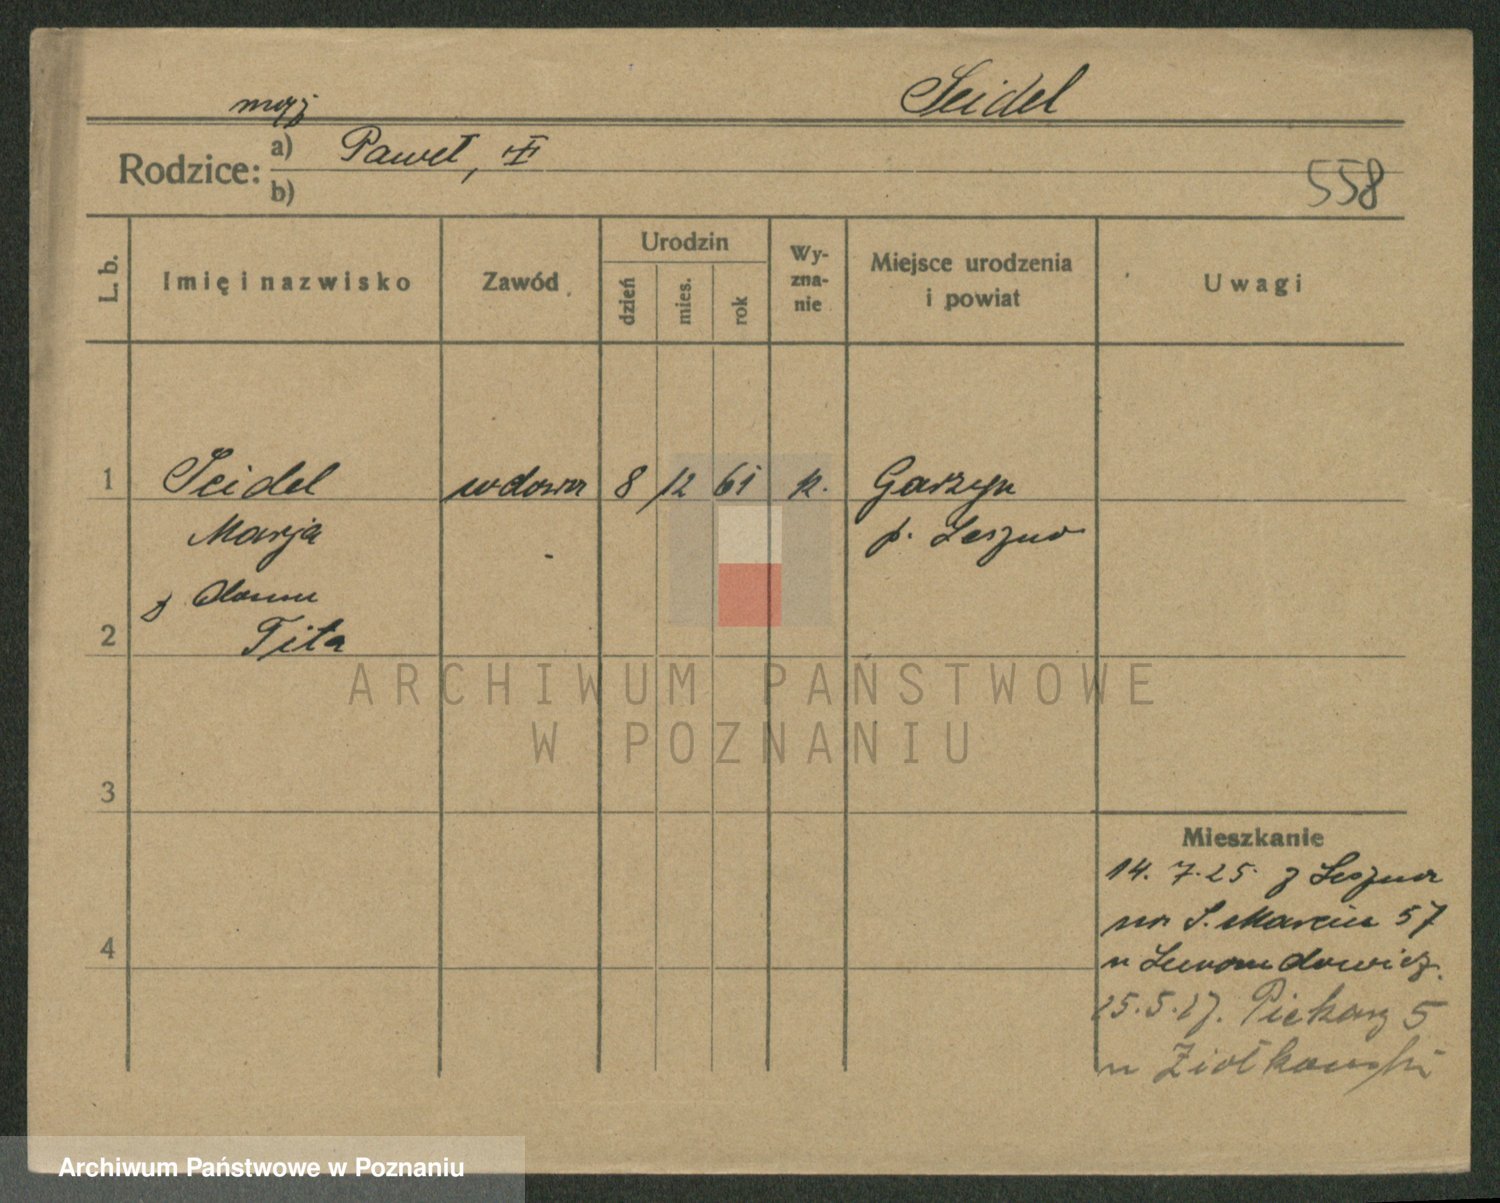 mąż
Seidel
Rodzice:
a) Paweł, †
b)
558
L. b.
Imię i nazwisko
Zawód
Urodzin
dzień
mies.
rok
Wy-
zna-
nie
Miejsce urodzenia
i powiat
Uwagi
1
Seidel wdowa 8 12 61 k. Garzyn
Marja p. Leszno
z domu
2
Tita
ARCHIWUM PAŃSTWOWE
W POZNANIU
3
Mieszkanie
14. 7. 25. z Leszna
na S. Marcin 57
4
u
5.27. Piekary 5
u Ziółkowski
Archiwum Państwowe w Poznaniu